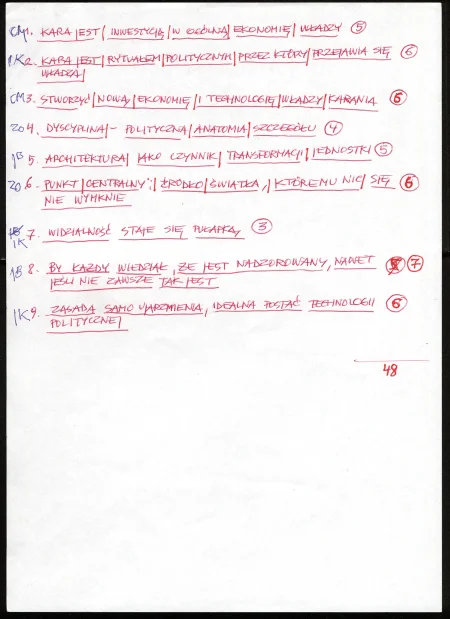 CM1. KARA JEST | INWESTYCJĄ | W OGÓLNĄ | EKONOMIĘ | WŁADZY (5)
1K2. KARA JEST | RYTUAŁEM | POLITYCZNYM | PRZEZ KTÓRY | PRZEJAWIA SIĘ (6)
WŁADZA |
CM3. STWORZYĆ | NOWĄ | EKONOMIĘ | I TECHNOLOGIĘ | WŁADZY | KARANIA (6)
ZO4. DYSCYPLINA | - POLITYCZNA | ANATOMIA | SZCZEGÓŁU (4)
1B5. ARCHITEKTURA | JAKO CZYNNIK | TRANSFORMACJI | JEDNOSTKI (5)
ZO6. PUNKT | CENTRALNY: | ŹRÓDŁO | ŚWIATŁA, | KTÓREMU NIC | SIĘ (6)
NIE WYMKNIE
1K 7. WIDZIALNOŚĆ STAJE SIĘ PUŁAPKĄ (3)
1B 8. BY KAŻDY WIEDZIAŁ, ŻE JEST NADZOROWANY, NAWET (7)
JEŚLI NIE ZAWSZE TAK JEST
1K9. ZASADA SAMO UJARZMIENIA, IDEALNA POSTAĆ TECHNOLOGII (6)
POLITYCZNEJ
48